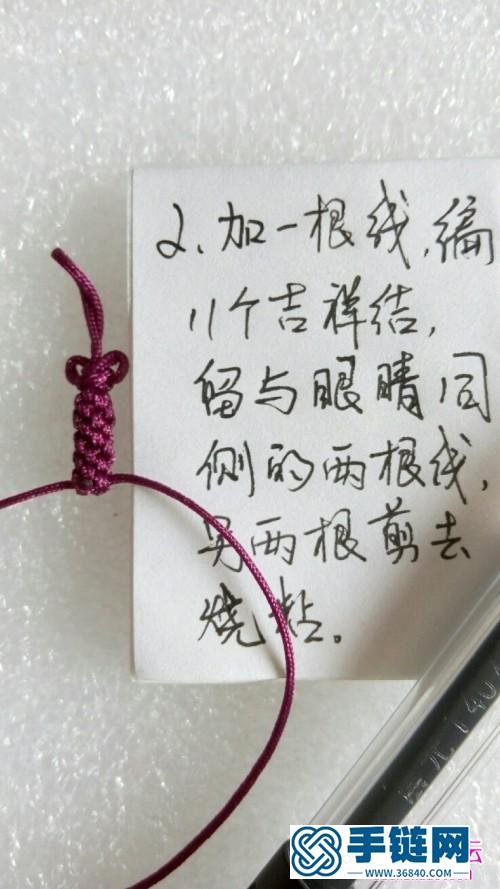 2、加一根线,编
11个吉祥结,
留与眼睛同
侧的两根线,
另两根剪去
烧粘。
手链网
WWW.36840.COM